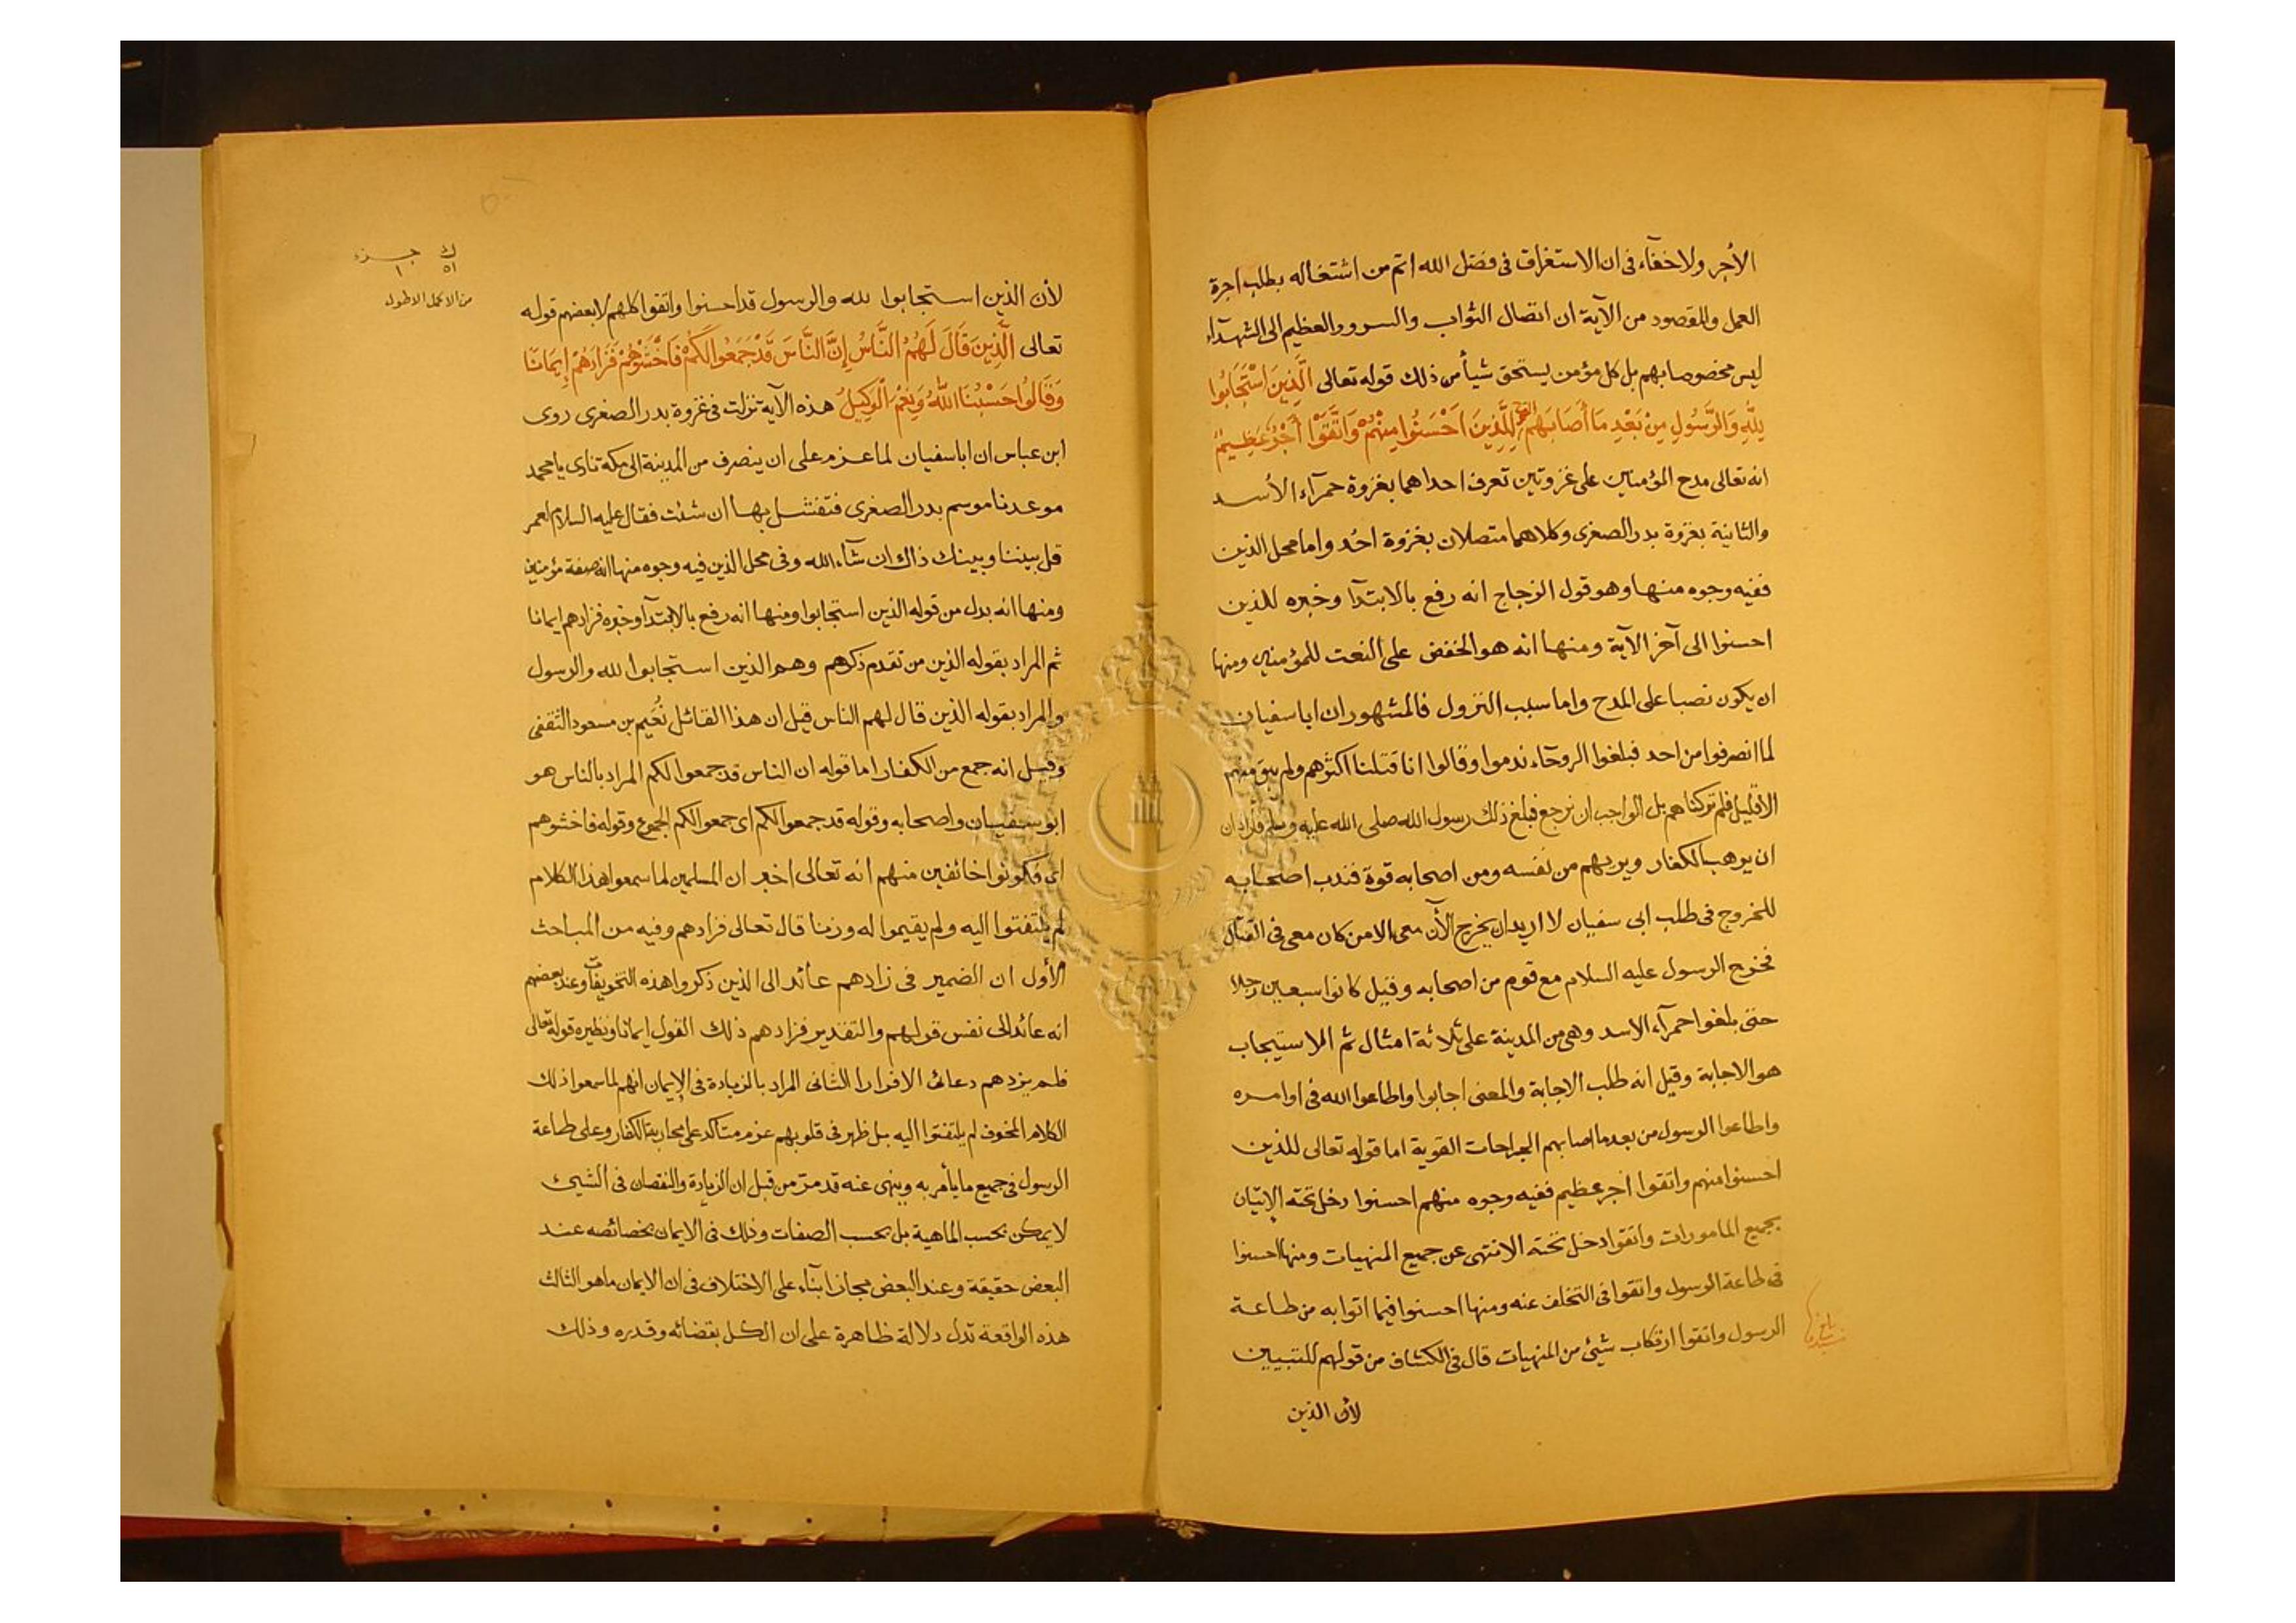 الأجر ولا خفآء فى ان الاستغراق فى فضل الله اتم من اشتغاله بطلب اجرة
العمل والمقصود من الآية ان اتصال الثواب والسرور العظيم الى الشهدآء
ليس مخصوصا بهم بل كل مؤمن يستحق شيأ من ذلك قوله تعالى الَّذِينَ اسْتَجَابُوا
لِلّهِ وَالرَّسُولِ مِنْ بَعْدِ مَا أَصَابَهُمُ القرح لِلَّذِينَ اَحْسَنُوا مِنْهُمْ وَاتَّقَوْا أَجْرٌ عَظِيمٌ
انه تعالى مدح المؤمنين على غزوتين تعرف احداهما بغزوة حمرآء الأسد
والثانية بغزوة بدر الصغرى وكلاهما متصلان بغزوة احُد واما محل الذين
ففيه وجوه منها وهو قول الزجاج انه رفع بالابتدآ وخبره للذين
احسنوا الى آخر الآية ومنها انه هو الخفض على النعت للمؤمنين ومنها
ان يكون نصبا على المدح واما سبب النزول فالمشهور ان ابا سفيان
لما انصرفوا من احد فبلغوا الروحآء ندموا وقالوا انا قتلنا اكثرهم ولم يبق منهم
الا قليل فلم تركناهم بل الواجب ان نرجع فبلغ ذلك رسول الله صلى الله عليه وسلم فاراد ان
ان يرهب الكفار ويريهم من نفسه ومن اصحابه قوة فندب اصحابه
للخروج فى طلب ابى سفيان لا اريد ان يخرج الآن معى الا من كان معى فى القتال
فخرج الرسول عليه السلام مع قوم من اصحابه وقيل كانوا سبعين رجلا
حتى بلغوا حمرآء الاسد وهى من المدينة على ثلاثة امثال ثم الاستيجاب
هو الاجابة وقيل انه طلب الاجابة والمعنى اجابوا واطاعوا الله فى اوامره
واطاعوا الرسول من بعد ما اصابهم الجراحات القوية اما قوله تعالى للذين
احسنوا منهم واتقوا اجر عظيم ففيه وجوه منهم احسنوا دخل تحته الإتيان
بجميع المامورات واتقوا دخل تحته الانتهى عن جميع المنهيات ومنها احسنوا
فى طاعة الرسول واتقوا فى التخلف عنه ومنها احسنوا فيما اتوا به من طاعة
الرسول واتقوا ارتكاب شيئ من المنهيات قال فى الكشاف من قولهم للتبيين
لأن الذين
ك جزء
٥١ ١
من الاكمل الاطول
لأن الذين استجابوا لله والرسول قد احسنوا واتقوا كلهم لا بعضهم قوله
تعالى الَّذِينَ قَالَ لَهُمُ النَّاسُ إِنَّ النَّاسَ قَدْ جَمَعُوا لَكُمْ فَاخْشَوْهُمْ فَزَادَهُمْ إِيمَانًا
وَقَالُوا حَسْبُنَا اللَّهُ وَنِعْمَ الْوَكِيلُ هذه الآية نزلت فى غزوة بدر الصغرى روى
ابن عباس ان ابا سفيان لما عزم على ان ينصرف من المدينة الى مكة نادى يا محمد
موعدنا موسم بدر الصغرى فنقتتل بها ان شئت فقال عليه السلام لعمر
قل بيننا وبينك ذاك ان شآء الله وفى محل الذين فيه وجوه منها انه صفة مؤمنين
ومنها انه بدل من قوله الذين استجابوا ومنها انه رفع بالابتدآ وخبره فزادهم ايمانا
ثم المراد بقوله الذين من تقدم ذكرهم وهم الذين استجابوا لله والرسول
والمراد بقوله الذين قال لهم الناس قيل ان هذا القائل نُعيم بن مسعود الثقفى
وقيل انه جمع من الكفار اما قوله ان الناس قد جمعوا لكم المراد بالناس هو
ابو سفيان واصحابه وقوله قد جمعوا لكم اى جمعوا لكم الجموع وقوله فاخشوهم
اى فكونوا خائفين منهم انه تعالى اخبر ان المسلمين لما سمعوا هذا الكلام
لم يلتفتوا اليه ولم يقيموا له وزنا قال تعالى فزادهم وفيه من المباحث
الأول ان الضمير فى زادهم عائد الى الذين ذكروا هذه التخويفات وعند بعضهم
انه عائد الى نفس قولهم والتقدير فزادهم ذلك القول ايمانا ونظيره قوله تعالى
فلم يزدهم دعائى الا فرارا الثانى المراد بالزيادة فى الإيمان انهم لما سمعوا ذلك
الكلام المخوف لم يلتفتوا اليه بل ظهر فى قلوبهم عزم متاكد على محاربة الكفار وعلى طاعة
الرسول فى جميع ما يأمر به وينهى عنه قد مرّ من قبل ان الزيادة والنقصان فى الشيئ
لا يمكن بحسب الماهية بل بحسب الصفات وذلك فى الايمان بخصائصه عند
البعض حقيقة وعند البعض مجازا بنآء على الاختلاف فى ان الايمان ما هو الثالث
هذه الواقعة تدل دلالة ظاهرة على ان الكل بقضائه وقدره وذلك